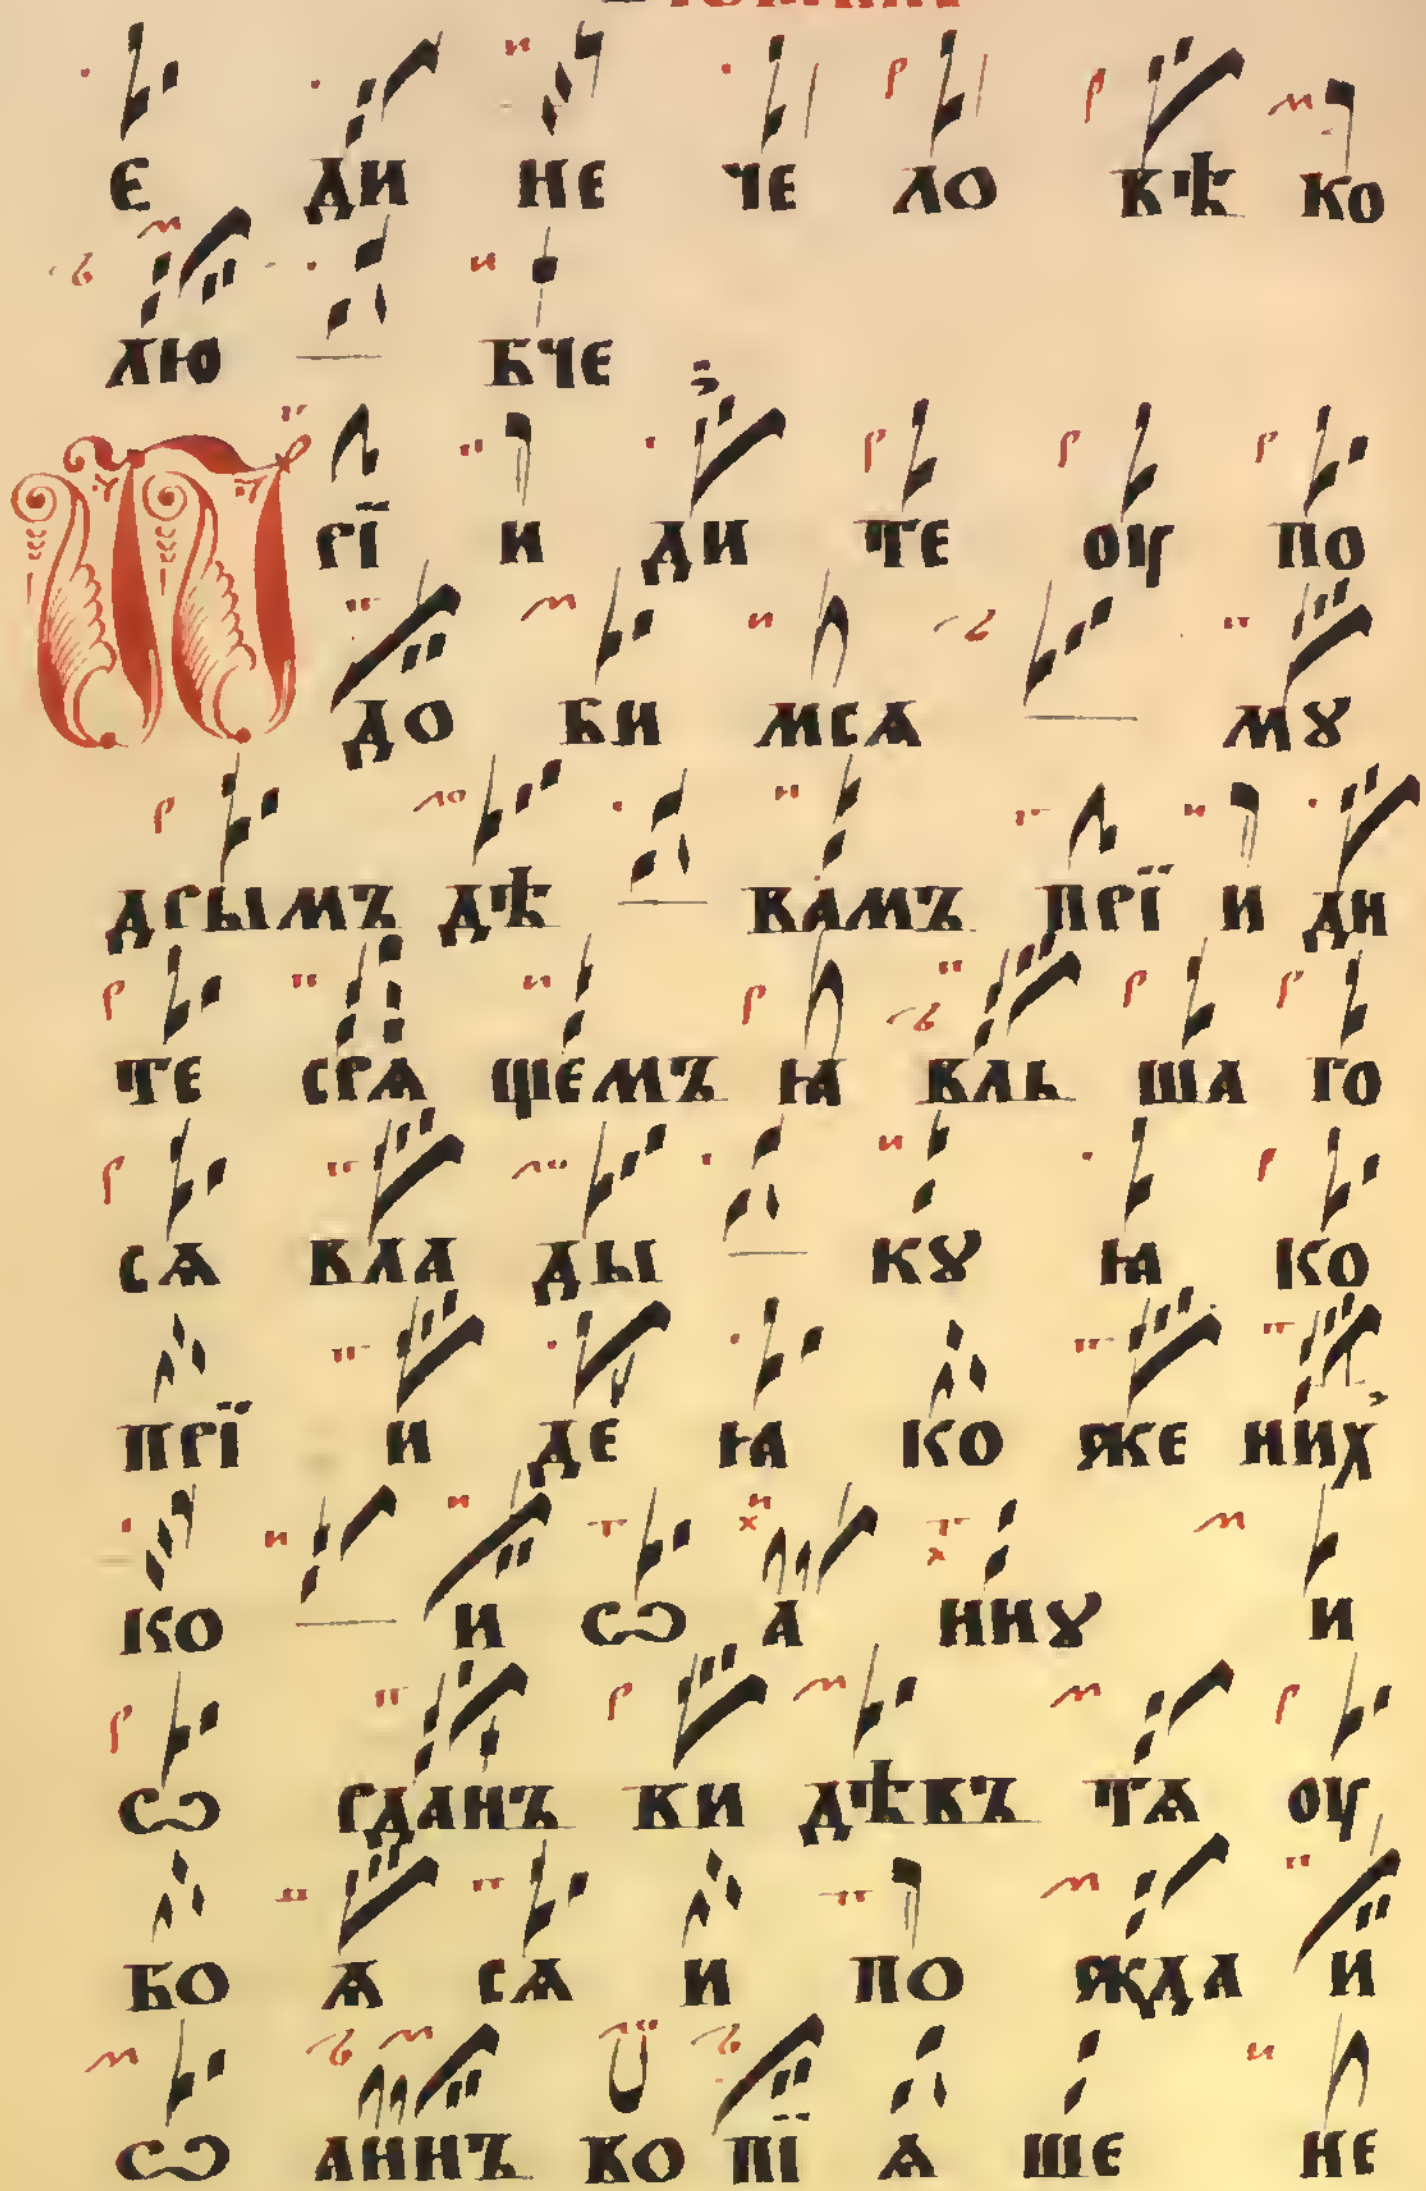 Е ДИ НЕ ЧЕ ЛО ВѢ КО
ЛЮ БЧЕ
ПРЇ И ДИ ТЕ ОУ ПО
ДО БИ МСѦ Мꙋ
ДРЫМЪ ДѢ ВАМЪ ПРЇ И ДИ
ТЕ СРѦ ЩЕМЪ Ꙗ ВЛЬ ША ГО
СѦ ВЛА ДЫ Кꙋ Ꙗ КО
ПРЇ И ДЕ Ꙗ КО ЖЕ НИХ
КО И Ѡ А ННꙋ И
Ѡ РДАНЪ ВИ ДѢВЪ ТѦ ОУ
БО Ѧ СѦ И ПО ЖДА И
Ѡ АННЪ ВО ПЇ Ѧ ШЕ НЕ